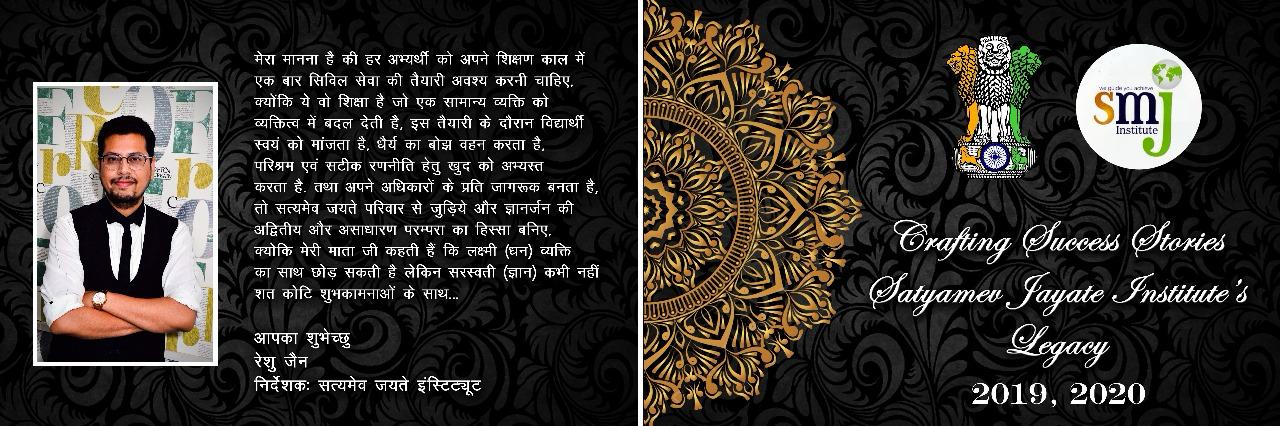 मेरा मानना है की हर अभ्यर्थी को अपने शिक्षण काल में
एक बार सिविल सेवा की तैयारी अवश्य करनी चाहिए,
क्योंकि ये वो शिक्षा है जो एक सामान्य व्यक्ति को
व्यक्तित्व में बदल देती है, इस तैयारी के दौरान विद्यार्थी
स्वयं को मांजता है, धैर्य का बोझ वहन करता है,
परिश्रम एवं सटीक रणनीति हेतु खुद को अभ्यस्त
करता है. तथा अपने अधिकारों के प्रति जागरूक बनता है,
तो सत्यमेव जयते परिवार से जुड़िये और ज्ञानर्जन की
अद्वितीय और असाधारण परम्परा का हिस्सा बनिए,
क्योकि मेरी माता जी कहती हैं कि लक्ष्मी (धन) व्यक्ति
का साथ छोड़ सकती है लेकिन सरस्वती (ज्ञान) कभी नहीं
शत कोटि शुभकामनाओं के साथ...
आपका शुभेच्छु
रेशु जैन
निर्देशकः सत्यमेव जयते इंस्टिट्यूट
we guide you achieve
smj
Institute
Crafting Success Stories
Satyamev Jayate Institute's
Legacy
2019, 2020